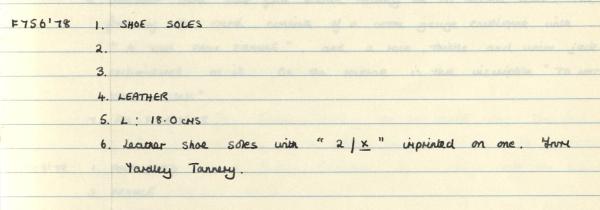 F756'78 1. SHOE SOLES
2.
3.
4. LEATHER
5. L : 18.0 CMS
6. Leather shoe soles with " 2 / x " inprinted on one. From
Yardley Tannery.